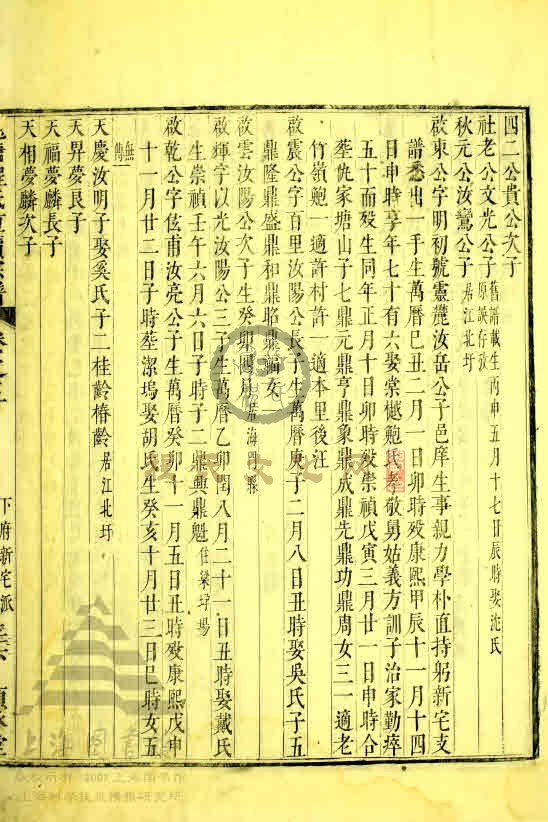 四二公貴公次子
社老公文光公子舊譜載生丙申五月十七日辰時娶沈氏
原誤存放
秋元公汝鸞公子居江北圩
啟東公字明初號靈麓汝岳公子邑庠生事親力學朴直持躬新宅支
譜悉出一手生萬曆己丑二月一日卯時歿康熙甲辰十一月十四
日申時享年七十有六娶棠樾鮑氏孝敬舅姑義方訓子治家勤瘁
五十而歿生同年正月十日卯時歿崇禎戊寅三月廿一日申時合
塟仇家塘山子七鼎元鼎亨鼎象鼎成鼎先鼎功鼎周女三一適老
竹嶺鮑一適許村許一適本里後汪
啟震公字百里汝陽公長子生萬曆庚子二月八日丑時娶吳氏子五
鼎隆鼎盛鼎和鼎昭鼎福女
啟雲汝陽公次子生癸卯四月居海鹽縣
啟輝字以光汝陽公三子生萬曆乙卯閏八月二十一日丑時娶戴氏
生崇禎壬午六月六日子時子二鼎興鼎魁住梁垜場
啟乾公字佐甫汝亮公子生萬曆癸卯十一月五日丑時歿康熙戊申
十月廿二日子時塟潔塢娶胡氏生癸亥十月廿三日巳時女五
無傳
天慶汝明子娶奚氏子二桂齡椿齡居江北圩
天昇夢良子
天福夢麟長子
天相夢麟次子
下府新宅派
上海图书馆